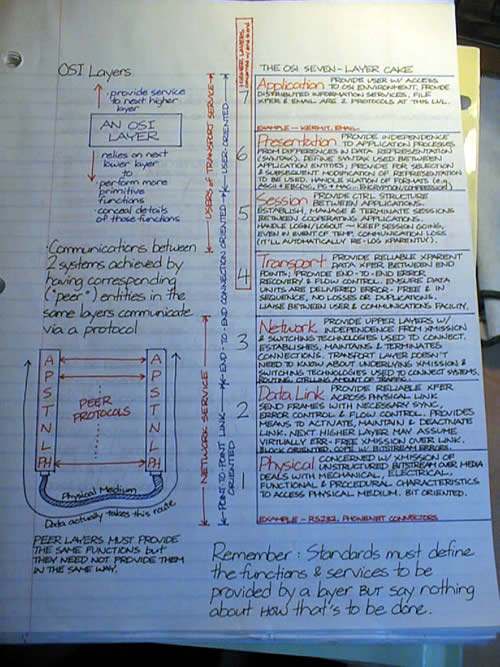 OSI Layers
• provide service
to next higher
layer
AN OSI
LAYER
relies on next
lower layer to
• perform more
primitive
functions
• conceal details
of those functions
• Communications between
2 systems achieved by
having corresponding
("peer") entities in the
same layers communicate
via a protocol
A A
P P
S PEER S
T PROTOCOLS T
N N
L L
PH PH
Physical Medium
Data actually takes this route
PEER LAYERS MUST PROVIDE
THE SAME FUNCTIONS but
THEY NEED NOT PROVIDE THEM
IN THE SAME WAY.
USERS of TRANSPORT SERVICE
NETWORK SERVICE
USER-ORIENTED
END-TO-END CONNECTION ORIENTED
END-TO-END
POINT-TO-POINT LINK
ORIENTED
HIGHER LAYERS
THE OSI SEVEN-LAYER CAKE
7
Application PROVIDE USER W/ ACCESS
TO OSI ENVIRONMENT, PROVIDE
DISTRIBUTED INFORMATION SERVICES, FILE
XFER & EMAIL ARE 2 PROTOCOLS AT THIS LVL.
EXAMPLE – KERMIT, EMAIL
6
Presentation PROVIDE INDEPENDENCE
TO APPLICATION PROCESSES
FROM DIFFERENCES IN DATA REPRESENTATION
(SYNTAX), DEFINE SYNTAX USED BETWEEN
APPLICATION ENTITIES; PROVIDE FOR SELECTION
& SUBSEQUENT MODIFICATION OF REPRESENTATION
TO BE USED. HANDLE XLATION OF FORMATS (e.g.,
ASCII & EBCDIC, PC & MAC; ENCRYPTION/COMPRESSION)
5
Session PROVIDE CTRL STRUCTURE
BETWEEN APPLICATIONS;
ESTABLISH, MANAGE & TERMINATE SESSIONS
BETWEEN COOPERATING APPLICATIONS.
HANDLE LOGIN/LOGOUT – KEEP SESSION GOING,
EVEN IN EVENT OF TEMP. COMMUNICATION LOSS
(IT'LL AUTOMATICALLY RE-LOG XPARENTLY).
4
Transport PROVIDE RELIABLE XPARENT
DATA XFER BETWEEN END
POINTS; PROVIDE END-TO-END ERROR
RECOVERY & FLOW CONTROL. ENSURE DATA
UNITS ARE DELIVERED ERROR-FREE & IN
SEQUENCE, NO LOSSES OR DUPLICATIONS.
LIAISE BETWEEN USER & COMMUNICATIONS FACILITY.
3
Network PROVIDE UPPER LAYERS W/
INDEPENDENCE FROM XMISSION
& SWITCHING TECHNOLOGIES USED TO CONNECT.
ESTABLISHES, MAINTAINS & TERMINATES
CONNECTIONS. TRANSPORT LAYER DOESN'T
NEED TO KNOW ABOUT UNDERLYING XMISSION &
SWITCHING TECHNOLOGIES USED TO CONNECT SYSTEMS.
ROUTING, CTRLLING AMOUNT OF TRAFFIC.
2
Data Link PROVIDE RELIABLE XFER
ACROSS PHYSICAL LINK
SEND FRAMES WITH NECESSARY SYNC,
ERROR CONTROL & FLOW CONTROL. PROVIDES
MEANS TO ACTIVATE, MAINTAIN & DEACTIVATE
LINK. NEXT HIGHER LAYER MAY ASSUME
VIRTUALLY ERR-FREE XMISSION OVER LINK.
BLOCK ORIENTED, COPE W/ BITSTREAM ERRORS.
1
Physical CONCERNED W/ XMISSION OF
UNSTRUCTURED BITSTREAM OVER MEDIA
DEALS WITH MECHANICAL, ELECTRICAL,
FUNCTIONAL & PROCEDURAL CHARACTERISTICS
TO ACCESS PHYSICAL MEDIUM. BIT ORIENTED.
EXAMPLE – RS232, PHONENET CONNECTORS
Remember: Standards must define
the functions & services to be
provided by a layer BUT say nothing
about HOW that's to be done.